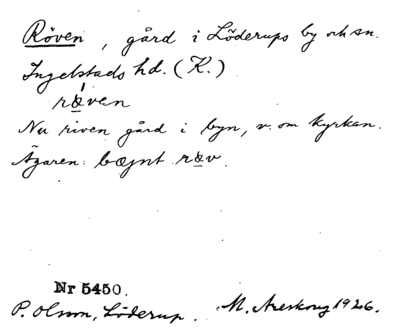 Röven, gård i Löderups by och sn.
Ingelstads hd. (K.)
røven
Nu riven gård i byn, v. om kyrkan.
Ägaren: bægnt røv.
Nr 5450.
P. Olsson, Löderup. M. Areskoug 1926.